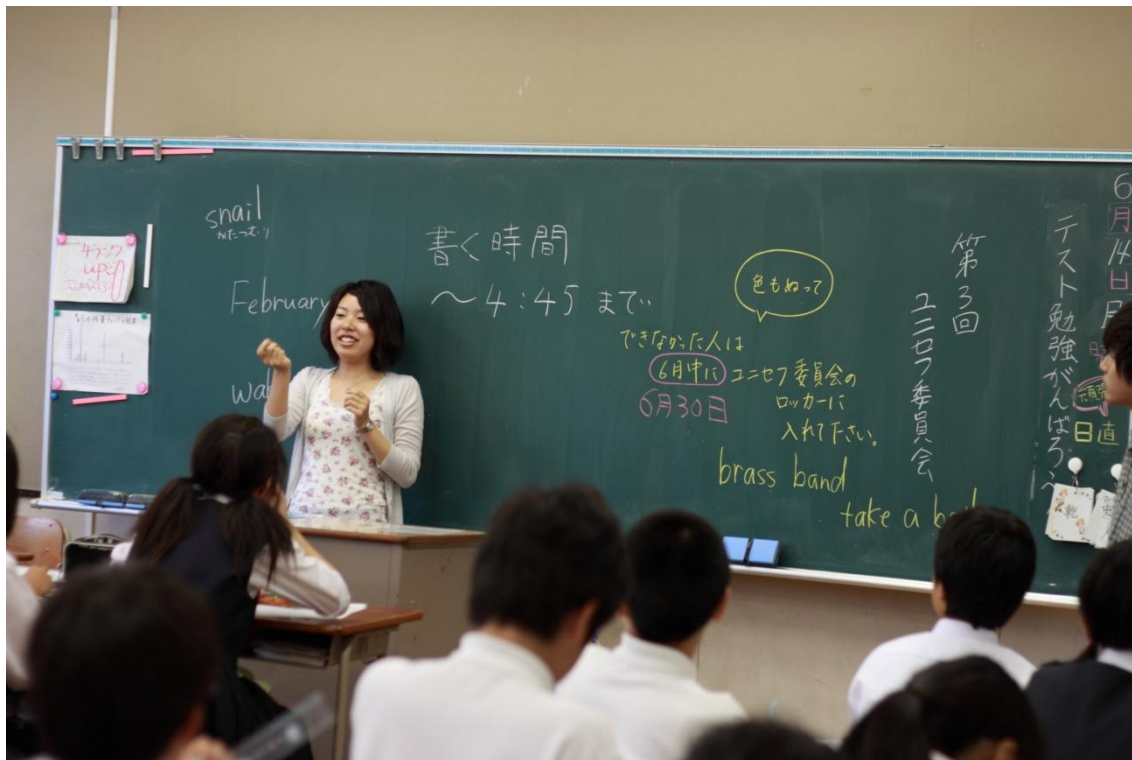 snail
かたつむり
February
書く時間
～4:45 まで
色もぬって
できなかった人は
6月中に ユニセフ委員会の
6月30日 ロッカーに
入れて下さい。
brass band
take a
第3回
ユニセフ委員会
テスト勉強がんばろう
6月14日
日直